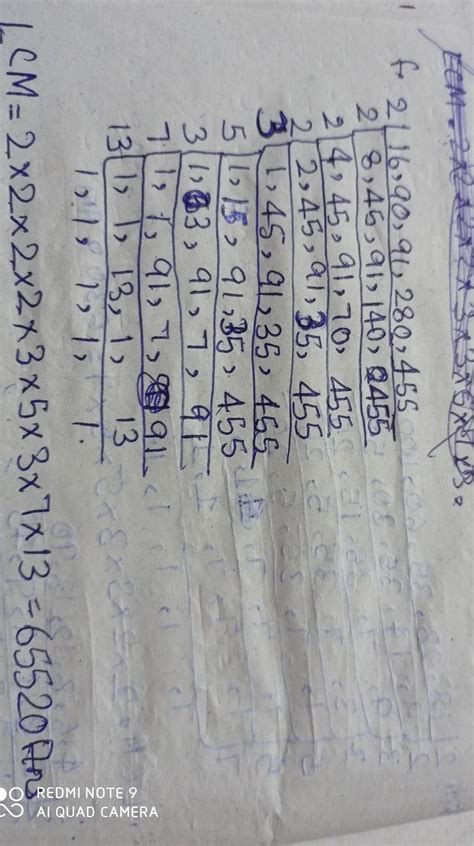 2 | 16, 90, 91, 280, 455
2 | 8, 45, 91, 140, 455
2 | 4, 45, 91, 70, 455
2 | 2, 45, 91, 35, 455
3 | 1, 45, 91, 35, 455
5 | 1, 15, 91, 35, 455
3 | 1, 3, 91, 7, 91
7 | 1, 1, 91, 7, 91
13 | 1, 1, 13, 1, 13
1, 1, 1, 1, 1.
LCM = 2×2×2×2×3×5×3×7×13 = 65520 Ans
REDMI NOTE 9
AI QUAD CAMERA